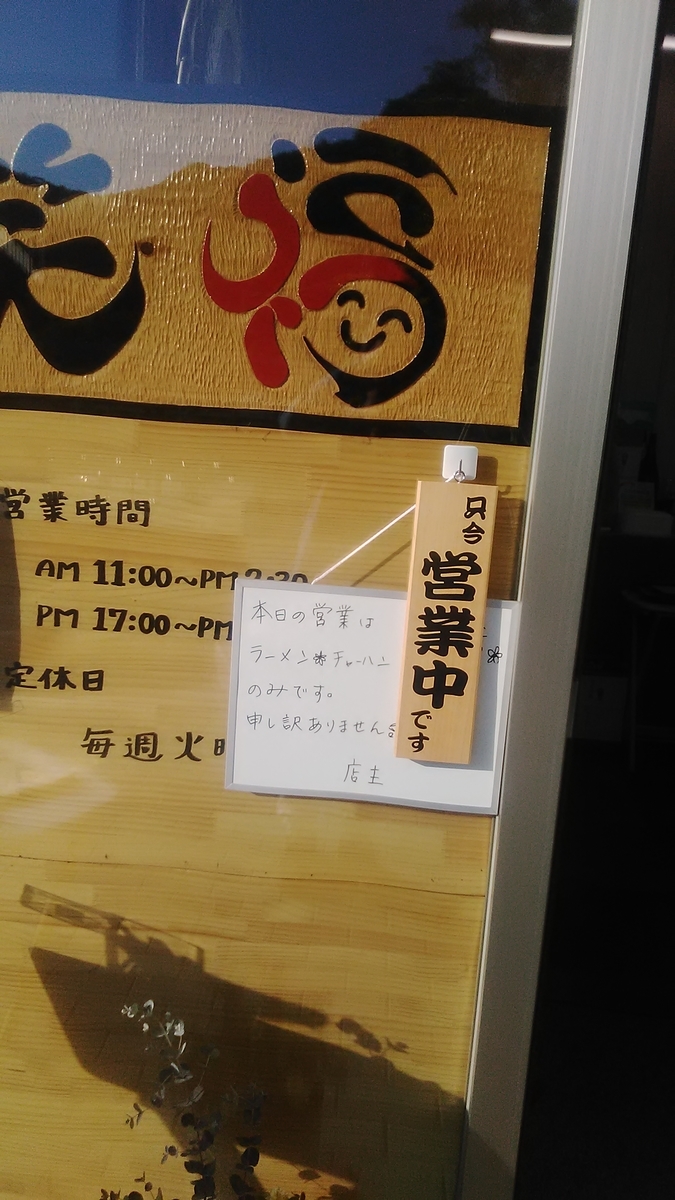 営業時間
AM 11:00～PM 2:30
PM 17:00～PM
定休日
毎週火曜
只今
営業中
です
本日の営業は
ラーメン チャーハン
のみです。
申し訳ありません。
店主